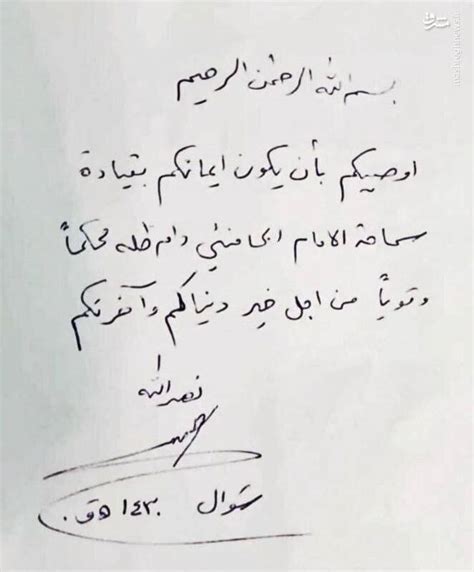 بسم الله الرحمن الرحيم
اوصيكم بأن يكون ايمانكم بقيادة
سماحة الامام الخامنئي دام ظله محكماً
وقوياً من اجل خير دنياكم وآخرتكم
نصر الله
شوال ١٤٣٠ ه‍ق.
مشرق
mashreghnews.ir